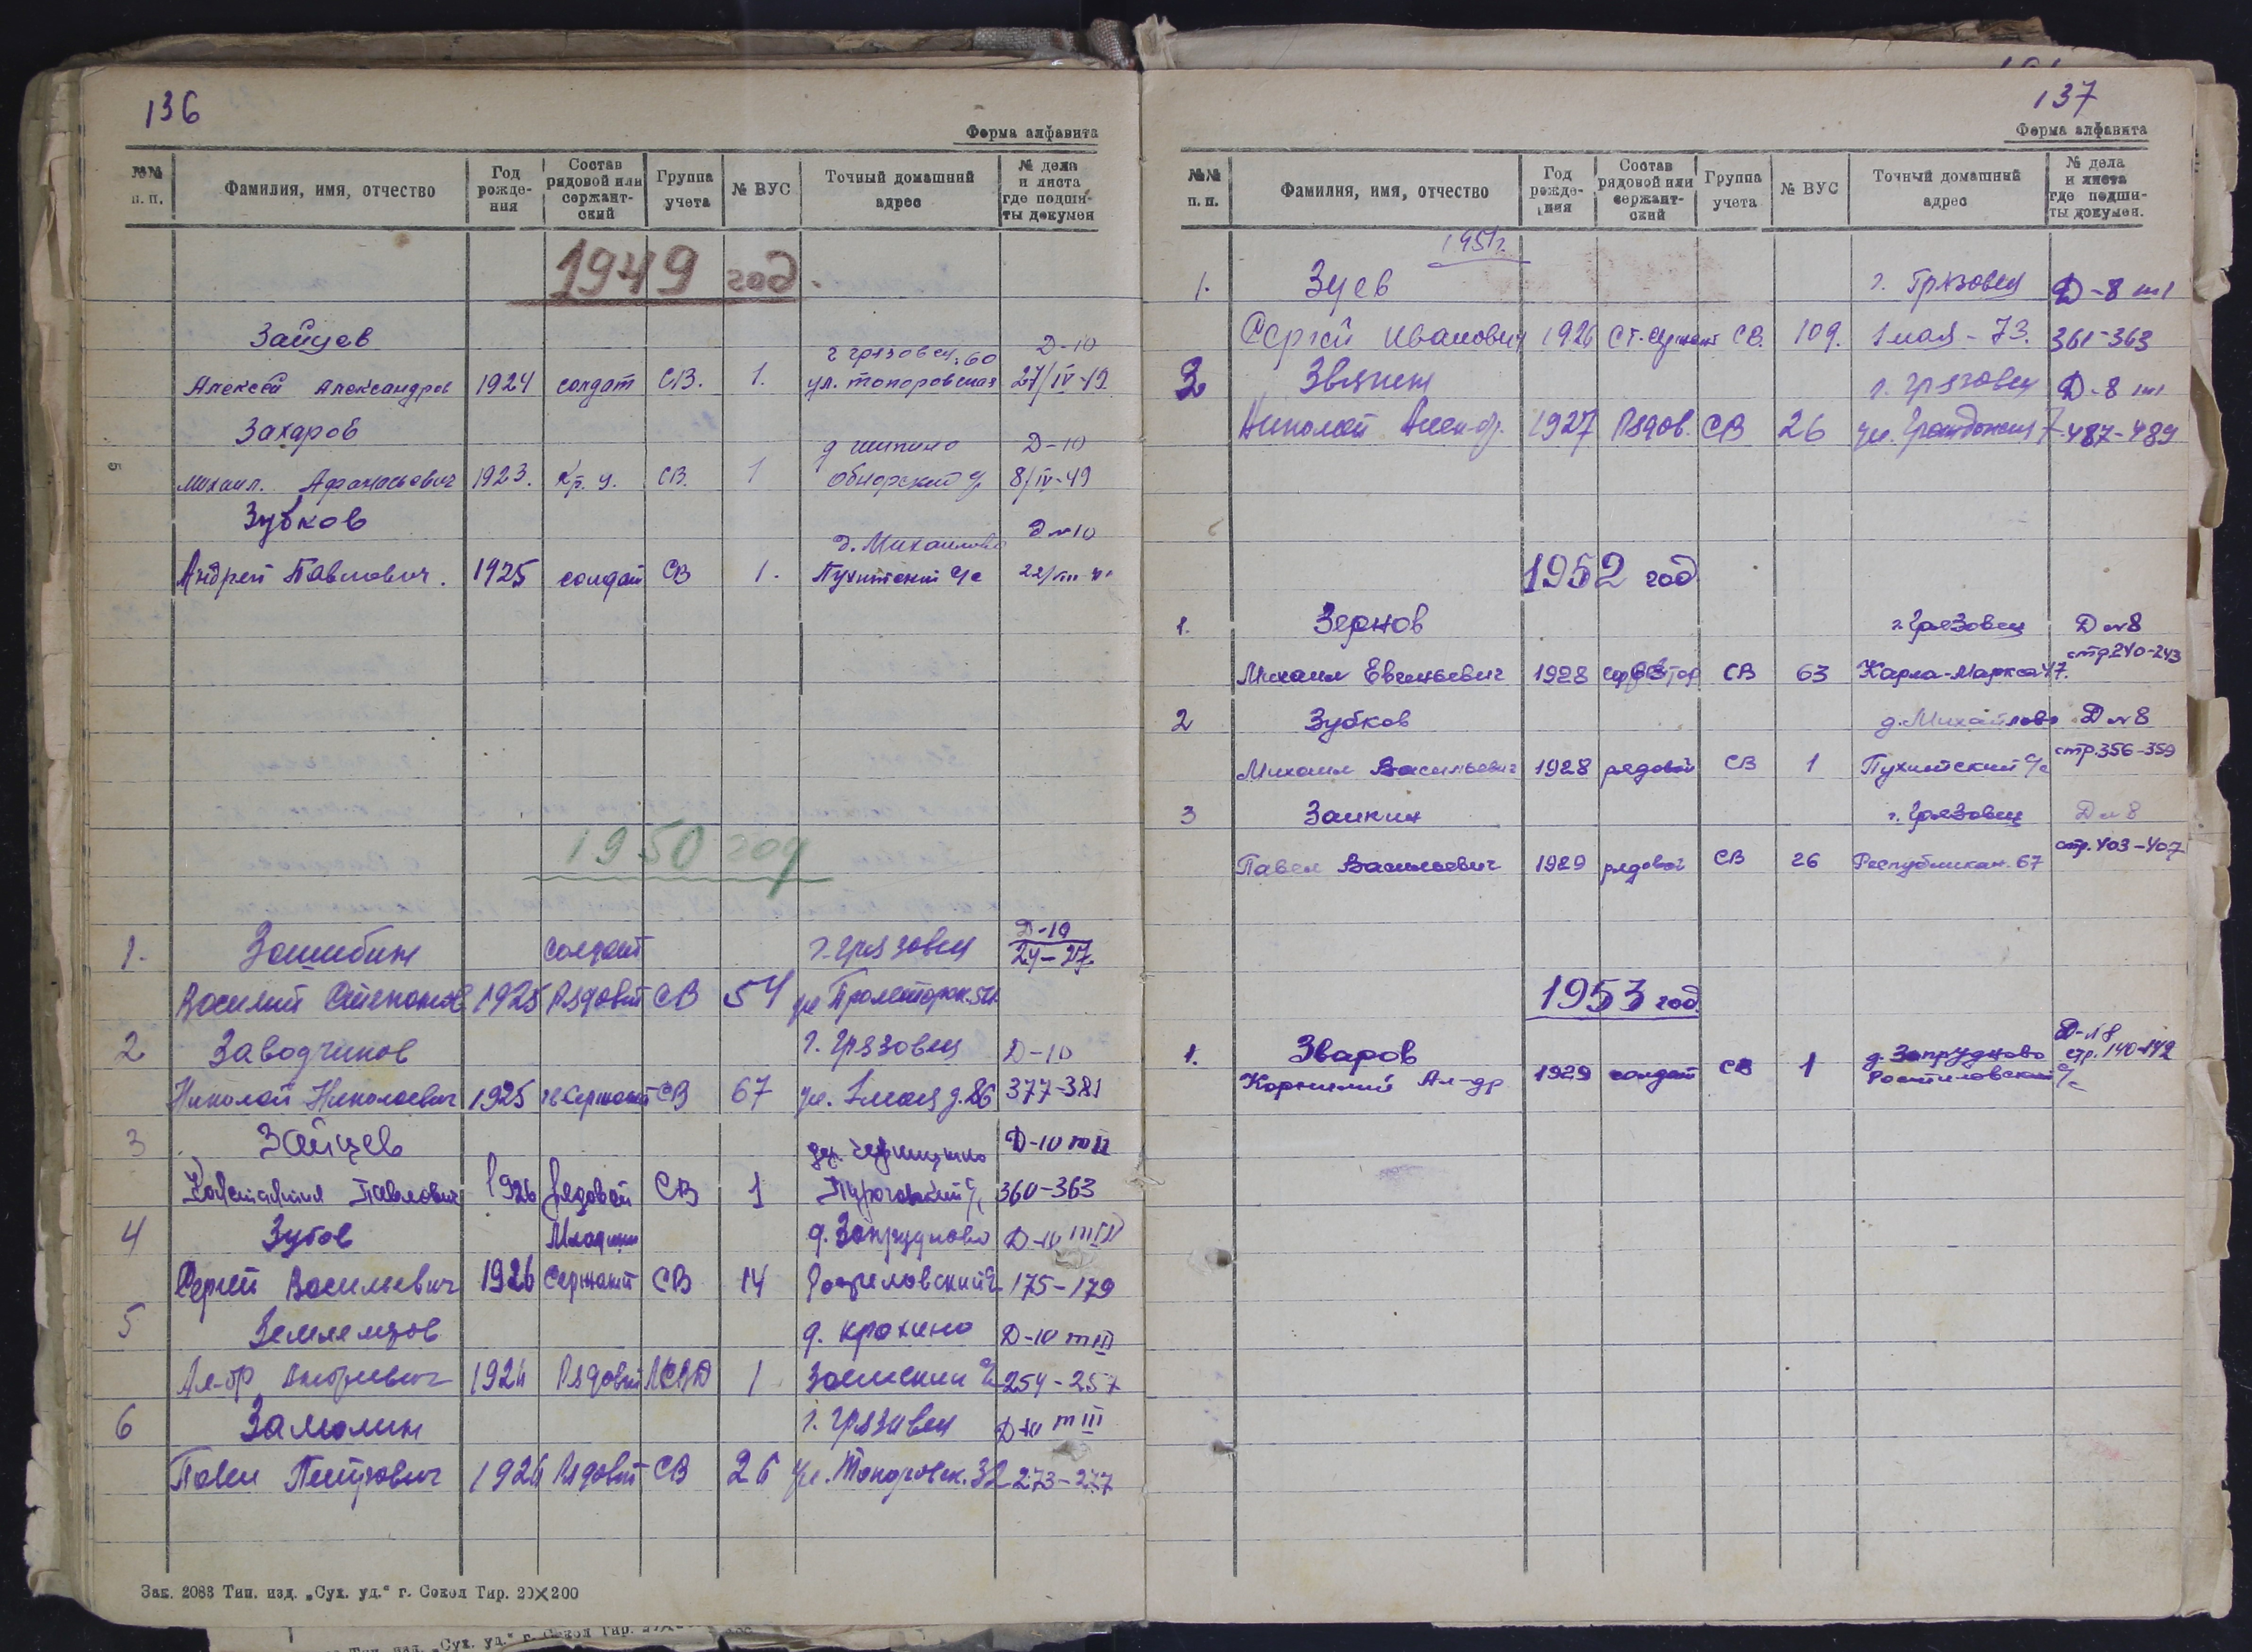 136
Форма алфавита
№№ п. п. Фамилия, имя, отчество Год рожде-ния Состав рядовой или сержант-ский Группа учета № ВУС Точный домашний адрес № дела и листа где подши-ты докумен
1949 год.
Зайцев Д-10
г Грязовец, 60
Алексей Александров 1924 солдат СВ. 1. ул. Топоровская 27/IV-49
Захаров д Шипино Д-10
Михаил. Афанасьевич 1923. Кр. СВ. 1 Обнорский 8/IV-49
Зубков д. Михайлово Д №10
Андрей Павлович. 1925 солдат СВ 1. Пухитский с/с
1950 год
1. Зашибин солдат г. Грязовец Д-10 24-27
Василий Степанов 1925 Рядовой СВ 54 ул Пролетарск.
2 Заводчиков г. Грязовец Д-10
Николай Николаевич 1925 СВ 67 ул. 1 мая д. 86 377-381
3 Зайцев дер. Д-10 т II
Константин Павлович 1926 рядовой СВ 1 360-363
4 Зубов Младши д. Запрудново Д-10 т III
Сергей Васильевич 1926 Сержант СВ 14 Ростиловский 175-179
5 Землемеров д. Крохино Д-10 т III
Ал-др 1926 Рядовой 1 Заемский 254-257
6 Замолин г. Грязовец Д-10 т III
Павел Петрович 1926 Рядовой СВ 26 ул. Топоровск. 32 273-277
Зак. 2083 Тип. изд. „Сух. уд.“ г. Сокол Тир. 20×200
137
Форма алфавита
№№ п. п. Фамилия, имя, отчество Год рожде-ния Состав рядовой или сержант-ский Группа учета № ВУС Точный домашний адрес № дела и листа где подши-ты докумен.
1951г.
1. Зуев г. Грязовец Д-8 т1
Сергей Иванович 1926 Ст. сержант СВ. 109. 1 мая - 73. 361-363
2 Звягин г. Грязовец Д-8 т1
Николай Алек-др. 1927 Рядов. СВ 26 ул. 487-489
1952 год
1. Зернов г. Грязовец Д №8
Михаил Евгеньевич 1928 СВ 63 Карла-Маркса 47. стр 240-243
2 Зубков д. Михайлово Д №8
Михаил Васильевич 1928 рядовой СВ 1 Пухитский с/с стр. 356-359
3 Заикин г. Грязовец Д №8
Павел Васильевич 1929 рядовой СВ 26 Республикан. 67 стр. 403-407
1953 год.
1. Зваров д. Запрудново Д-№8 стр. 140-142
Корнилий Ал-др 1929 солдат СВ 1 Ростиловский с/с